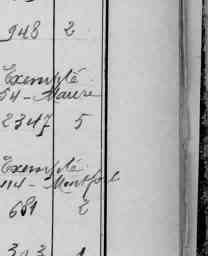 948 2
Exempté
54 - Maure
2347 5
Exempté
114 - Montfort
681 2